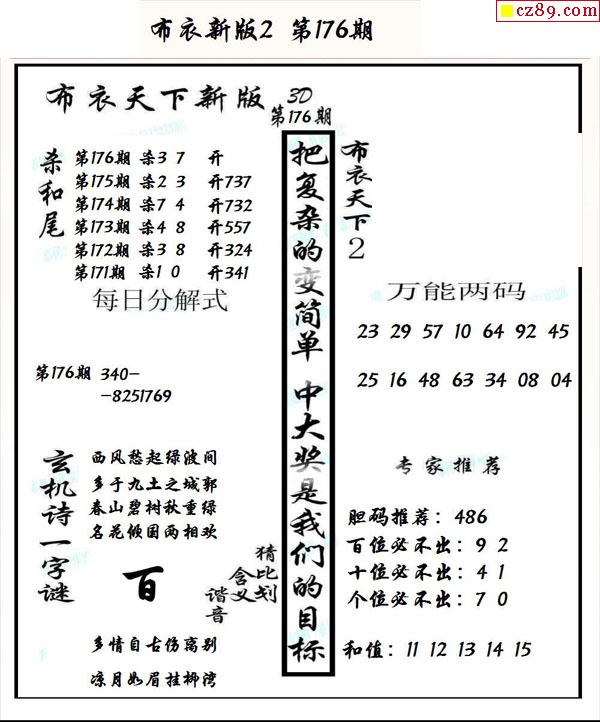 cz89.com
布衣新版2 第176期
布衣天下新版 3D
第176期
杀和尾
第176期 杀37 开
第175期 杀23 开737
第174期 杀74 开732
第173期 杀48 开557
第172期 杀38 开324
第171期 杀10 开341
每日分解式
第176期 340-
-8251769
玄机诗一字谜
西风愁起绿波间
多于九土之城郭
春山碧树秋重绿
名花倾国两相欢
百
猜比划
含义
谐音
多情自古伤离别
凉月如眉挂柳湾
把复杂的变简单 中大奖是我们的目标
布衣天下2
万能两码
23 29 57 10 64 92 45
25 16 48 63 34 08 04
专家推荐
胆码推荐：486
百位必不出：9 2
十位必不出：4 1
个位必不出：7 0
和值：11 12 13 14 15